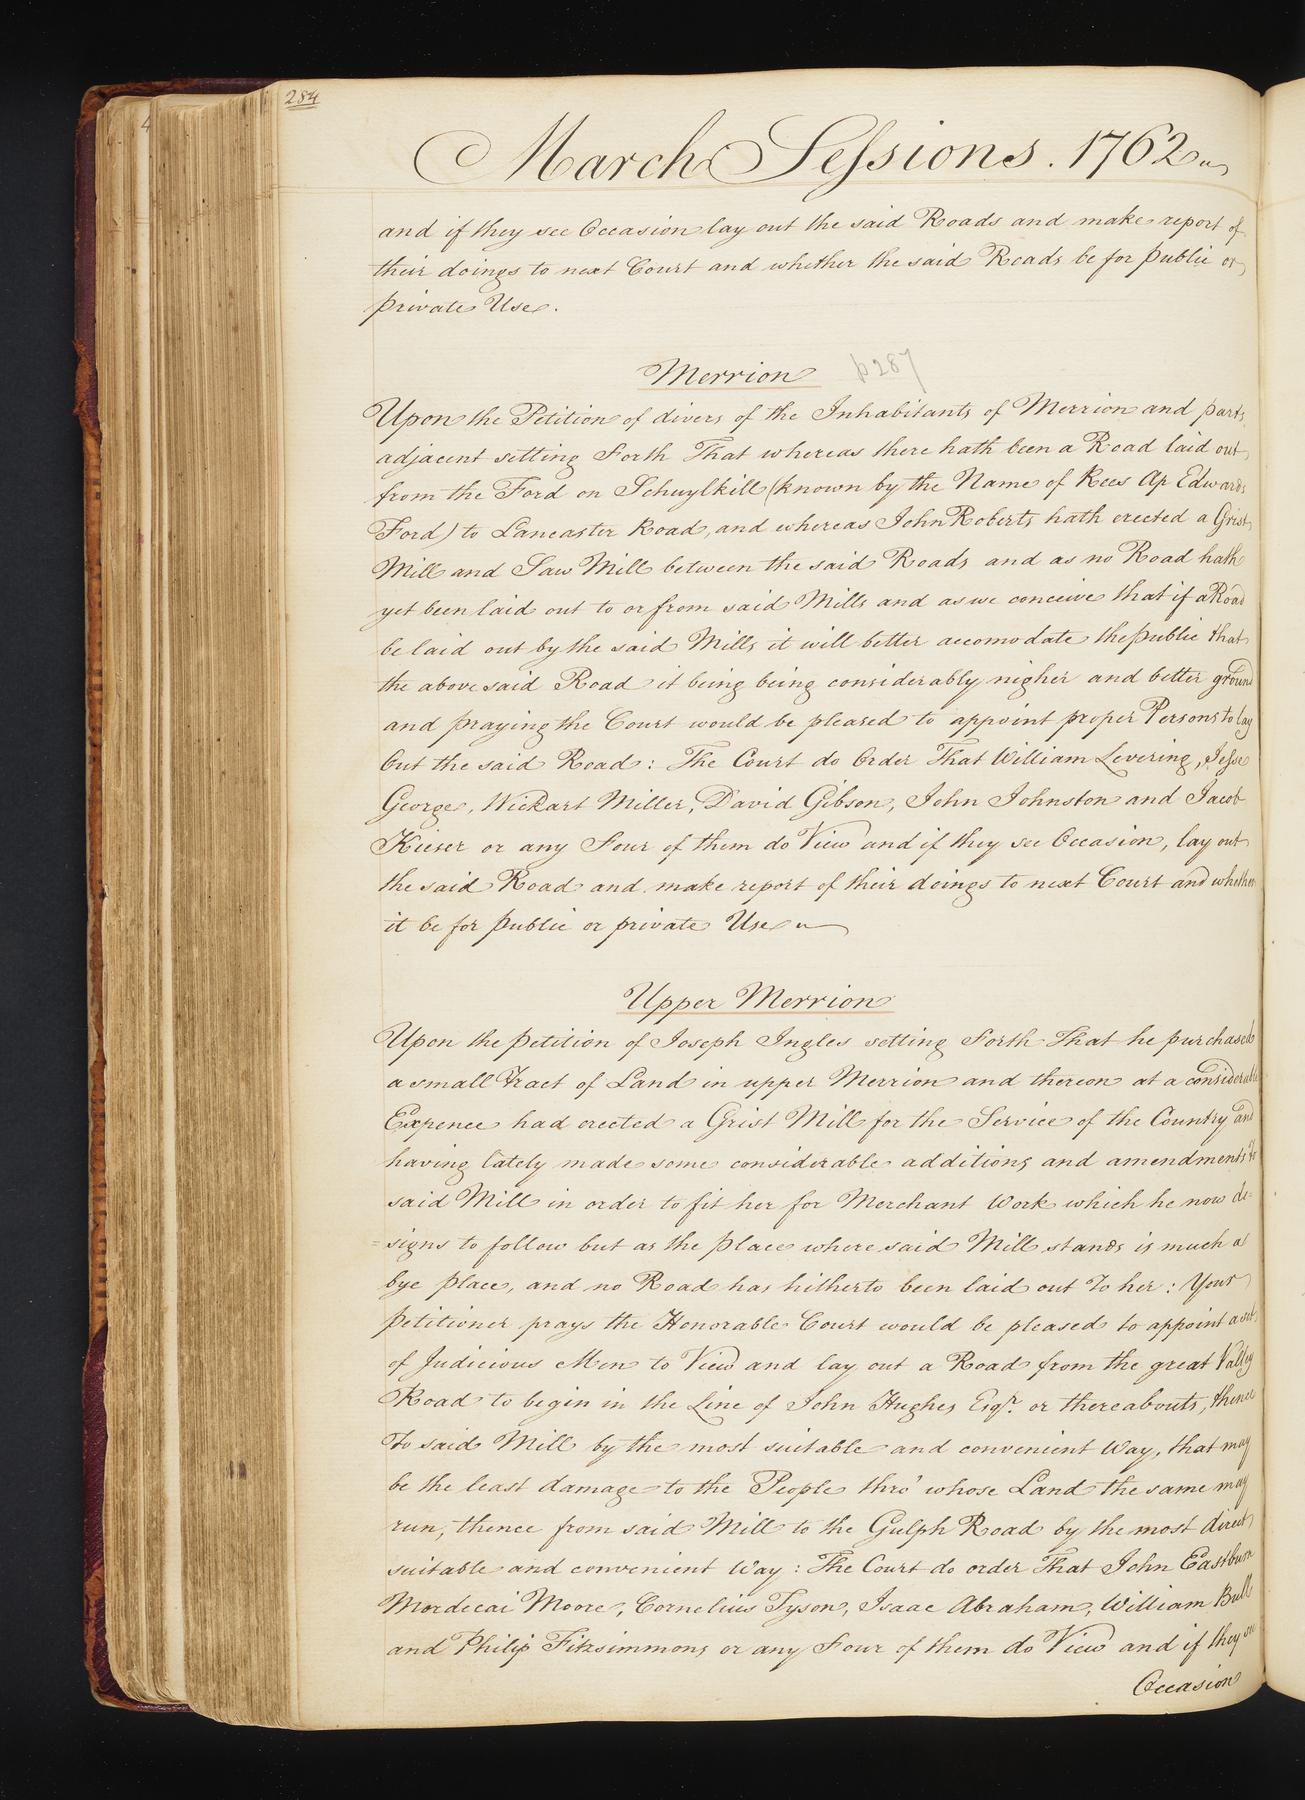 284
March Sessions. 1762
and if they see Occasion lay out the said Roads and make report of
their doings to next Court and whether the said Roads be for public or
private Use.
Merrion p 287
Upon the Petition of divers of the Inhabitants of Merrion and parts
adjacent setting Forth That whereas there hath been a Road laid out
from the Ford on Schuylkill (known by the Name of Rees Ap Edwards
Ford) to Lancaster Road, and whereas John Roberts hath erected a Grist
Mill and Saw Mill between the said Roads and as no Road hath
yet been laid out to or from said Mills and as we conceive that if a Road
be laid out by the said Mills it will better accomodate the public that
the above said Road it being being considerably nigher and better ground
and praying the Court would be pleased to appoint proper Persons to lay
Out the said Road: The Court do Order That William Levering, Jesse
George, Wickart Miller, David Gibson, John Johnston and Jacob
Keiser or any Four of them do View and if they see Occasion, lay out
the said Road and make report of their doings to next Court and whether
it be for public or private Use
Upper Merrion
Upon the petition of Joseph Ingles setting Forth That he purchased
a small Tract of Land in upper Merrion and thereon at a considerable
Expence had erected a Grist Mill for the Service of the Country and
having lately made some considerable additions and amendments to
said Mill in order to fit her for Merchant Work which he now de=
=signs to follow but as the place where said Mill stands is much a
bye place, and no Road has hitherto been laid out To her: Your
petitioner prays the Honorable Court would be pleased to appoint a set
of Judicious Men to View and lay out a Road from the great Valley
Road to begin in the Line of John Hughes Esqr. or thereabouts, thence
To said Mill by the most suitable and convenient Way, that may
be the least damage to the People thro' whose Land the same may
run, thence from said Mill to the Gulph Road by the most direct
suitable and convenient Way: The Court do order That John Eastburn
Mordecai Moore, Cornelius Tyson, Isaac Abraham, William Bull
and Philip Fitzsimmons or any Four of them do View and if they see
Occasion